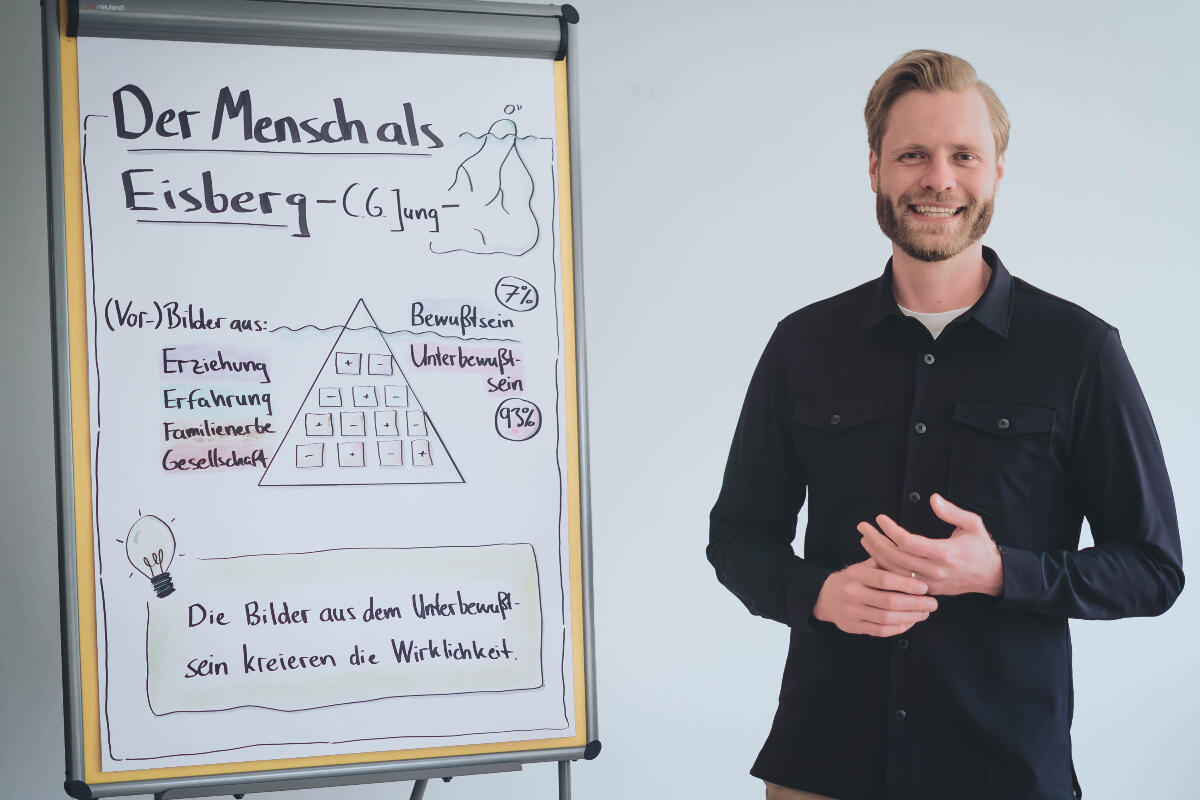 neuland
Der Mensch als
Eisberg - (C.G.] Jung -
(Vor-)Bilder aus:
Erziehung
Erfahrung
Familienerbe
Gesellschaft
7%
Bewußtsein
Unterbewußt-
sein
93%
+ -
- + -
+ - + -
- + - +
Die Bilder aus dem Unterbewußt-
sein kreieren die Wirklichkeit.